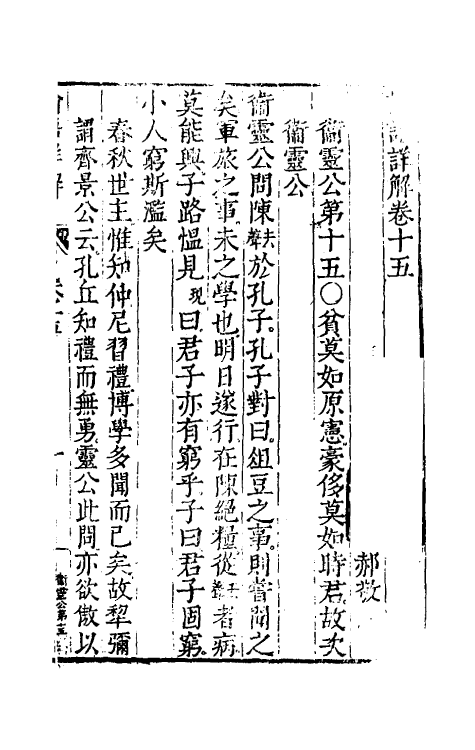 語詳解卷十五
郝敬
衞靈公第十五〇貧莫如原憲豪侈莫如時君故次
衞靈公
衞靈公問陳去聲於孔子孔子對曰俎豆之事則嘗聞之
矣軍旅之事未之學也明日遂行在陳絕糧從去聲者病
莫能興子路慍見現曰君子亦有窮乎子曰君子固窮
小人窮斯濫矣
春秋世主惟知仲尼習禮博學多聞而已矣故犁彌
謂齊景公云孔丘知禮而無勇靈公此問亦欲傲以
詳解 卷十五 一 衞靈公第十五